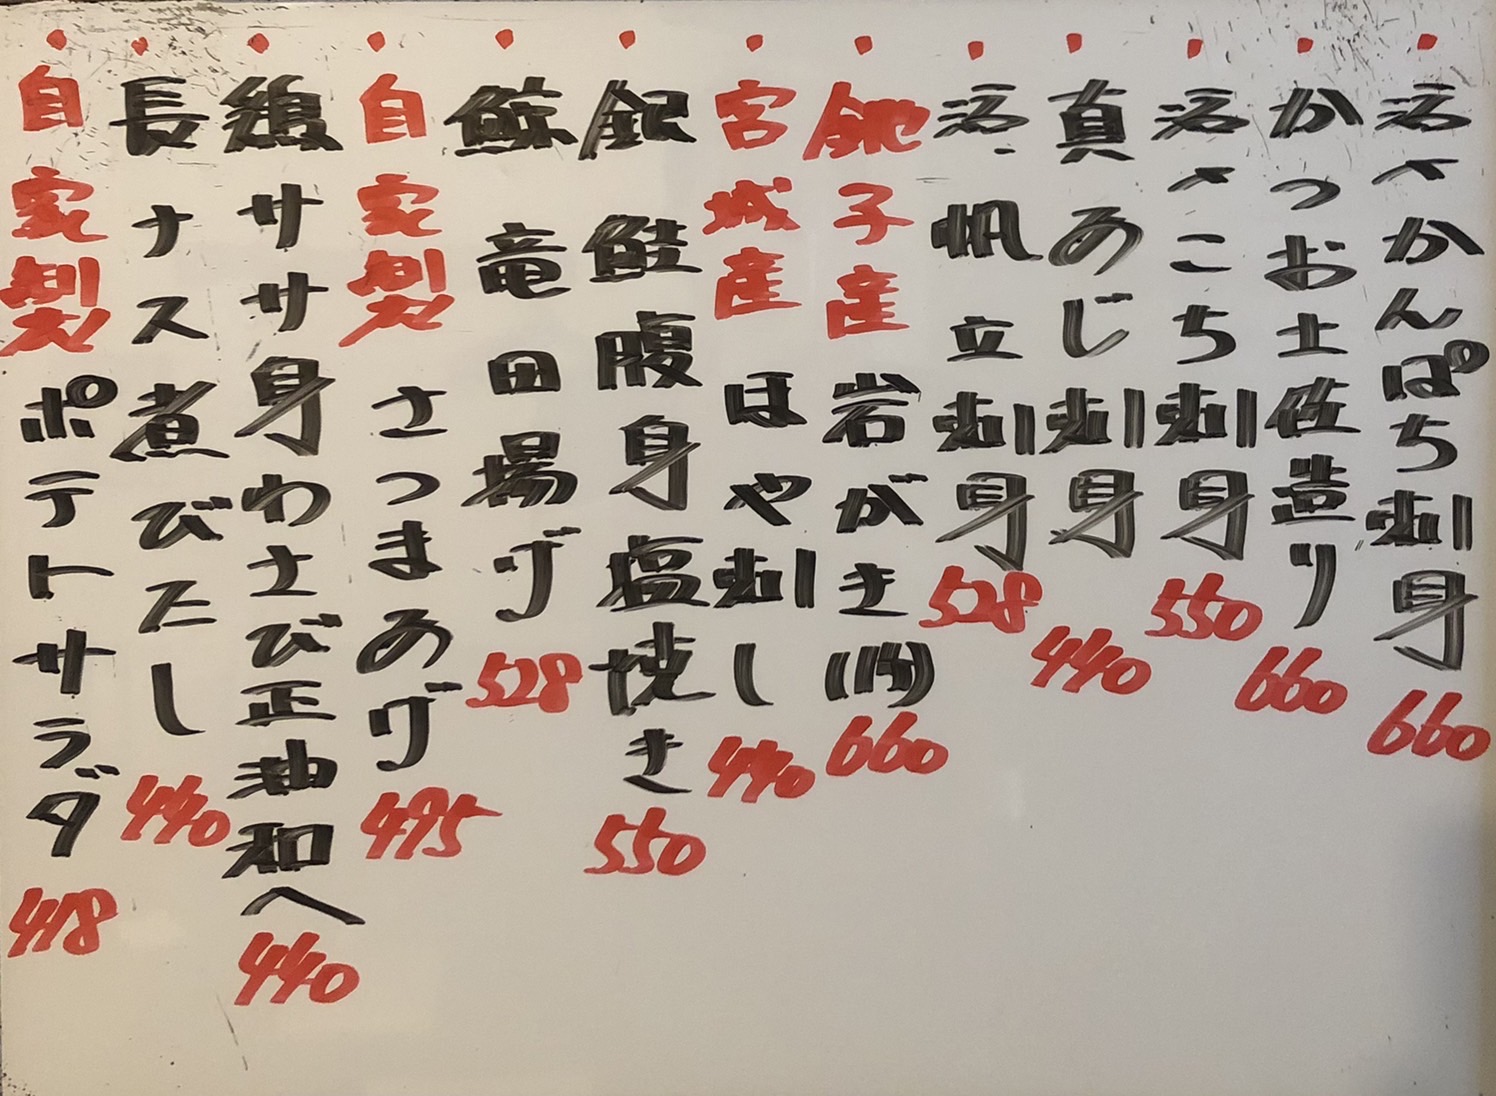 活〆かんぱち刺身 660
かつお土佐造り 660
活〆こち刺身 550
真あじ刺身 440
活帆立刺身 528
銚子産 岩がき(1ヶ) 660
宮城産 ほや刺し 440
銀鮭腹身塩焼き 550
鯨竜田揚げ 528
自家製 さつまあげ 495
鶏ササ身わさび正油和へ 440
長ナス煮びたし 440
自家製ポテトサラダ 418